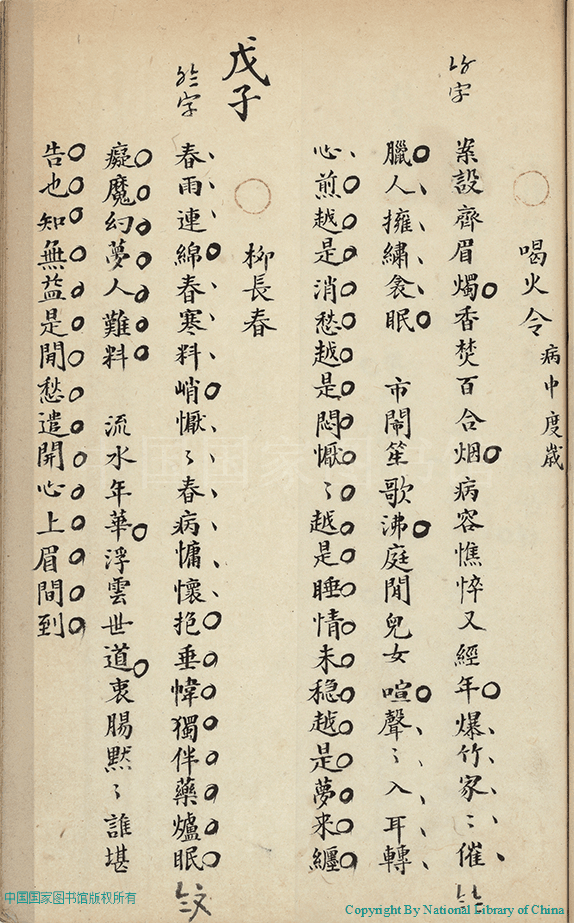 喝火令 病中度歲
案設齊眉燭香焚百合烟病容憔悴又經年爆竹家〻催
臘人擁繡衾眠 市閙笙歌沸庭閒兒女喧聲〻入耳轉
心煎越是消愁越是悶懨〻越是睡情未穏越是夢来纏
戊子
柳長春
春雨連綿春寒料峭懨〻春病慵懷抱垂幃獨伴藥爐眠
癡魔幻夢人難料 流水年華浮雲世道衷腸黙〻誰堪
告也知無益是閒愁遣開心上眉間到
中国国家图书馆
中国国家图书馆版权所有
Copyright By National Library of China